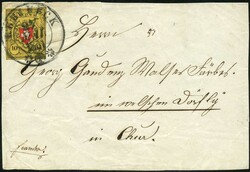 Herrn
Georg Gaudenz Walser Färber
im welschen Dörfly
in Chur.
franco